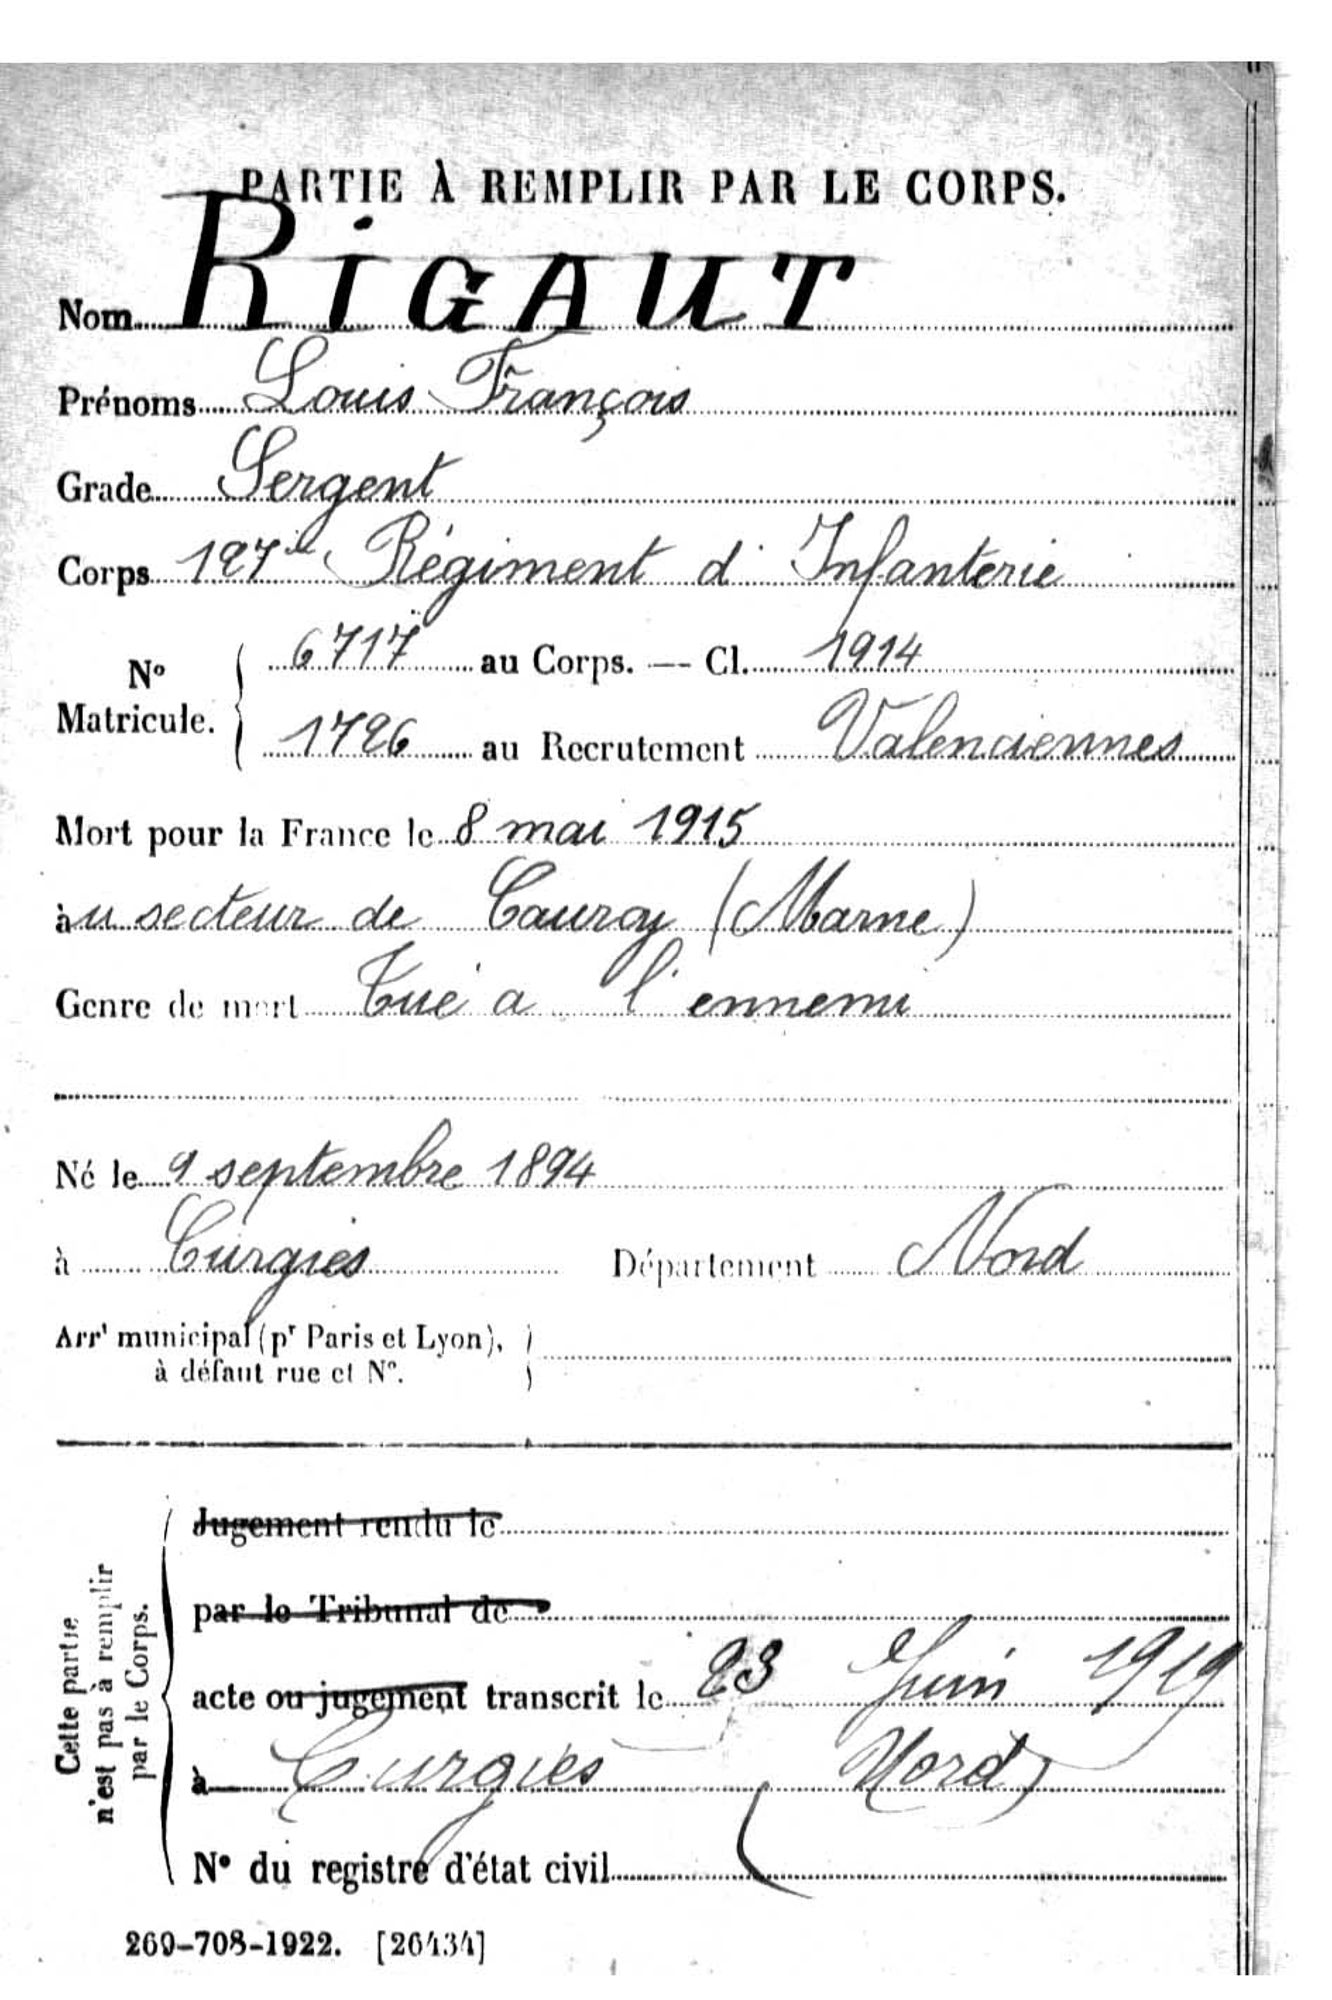 PARTIE À REMPLIR PAR LE CORPS.
Nom RIGAUT
Prénoms Louis François
Grade Sergent
Corps 127e Régiment d'Infanterie
N° Matricule. 6717 au Corps. — Cl. 1914
1726 au Recrutement Valenciennes
Mort pour la France le 8 mai 1915
au secteur de Cauroy (Marne)
Genre de mort Tué a l'ennemi
Né le 9 septembre 1894
à Curgies Département Nord
Arrt municipal (pr Paris et Lyon),
à défaut rue et N°.
Cette partie
n'est pas à remplir
par le Corps.
Jugement rendu le
par le Tribunal de
acte ou jugement transcrit le 23 Juin 1919
à Curgies (Nord)
N° du registre d'état civil
269-708-1922. [26434]